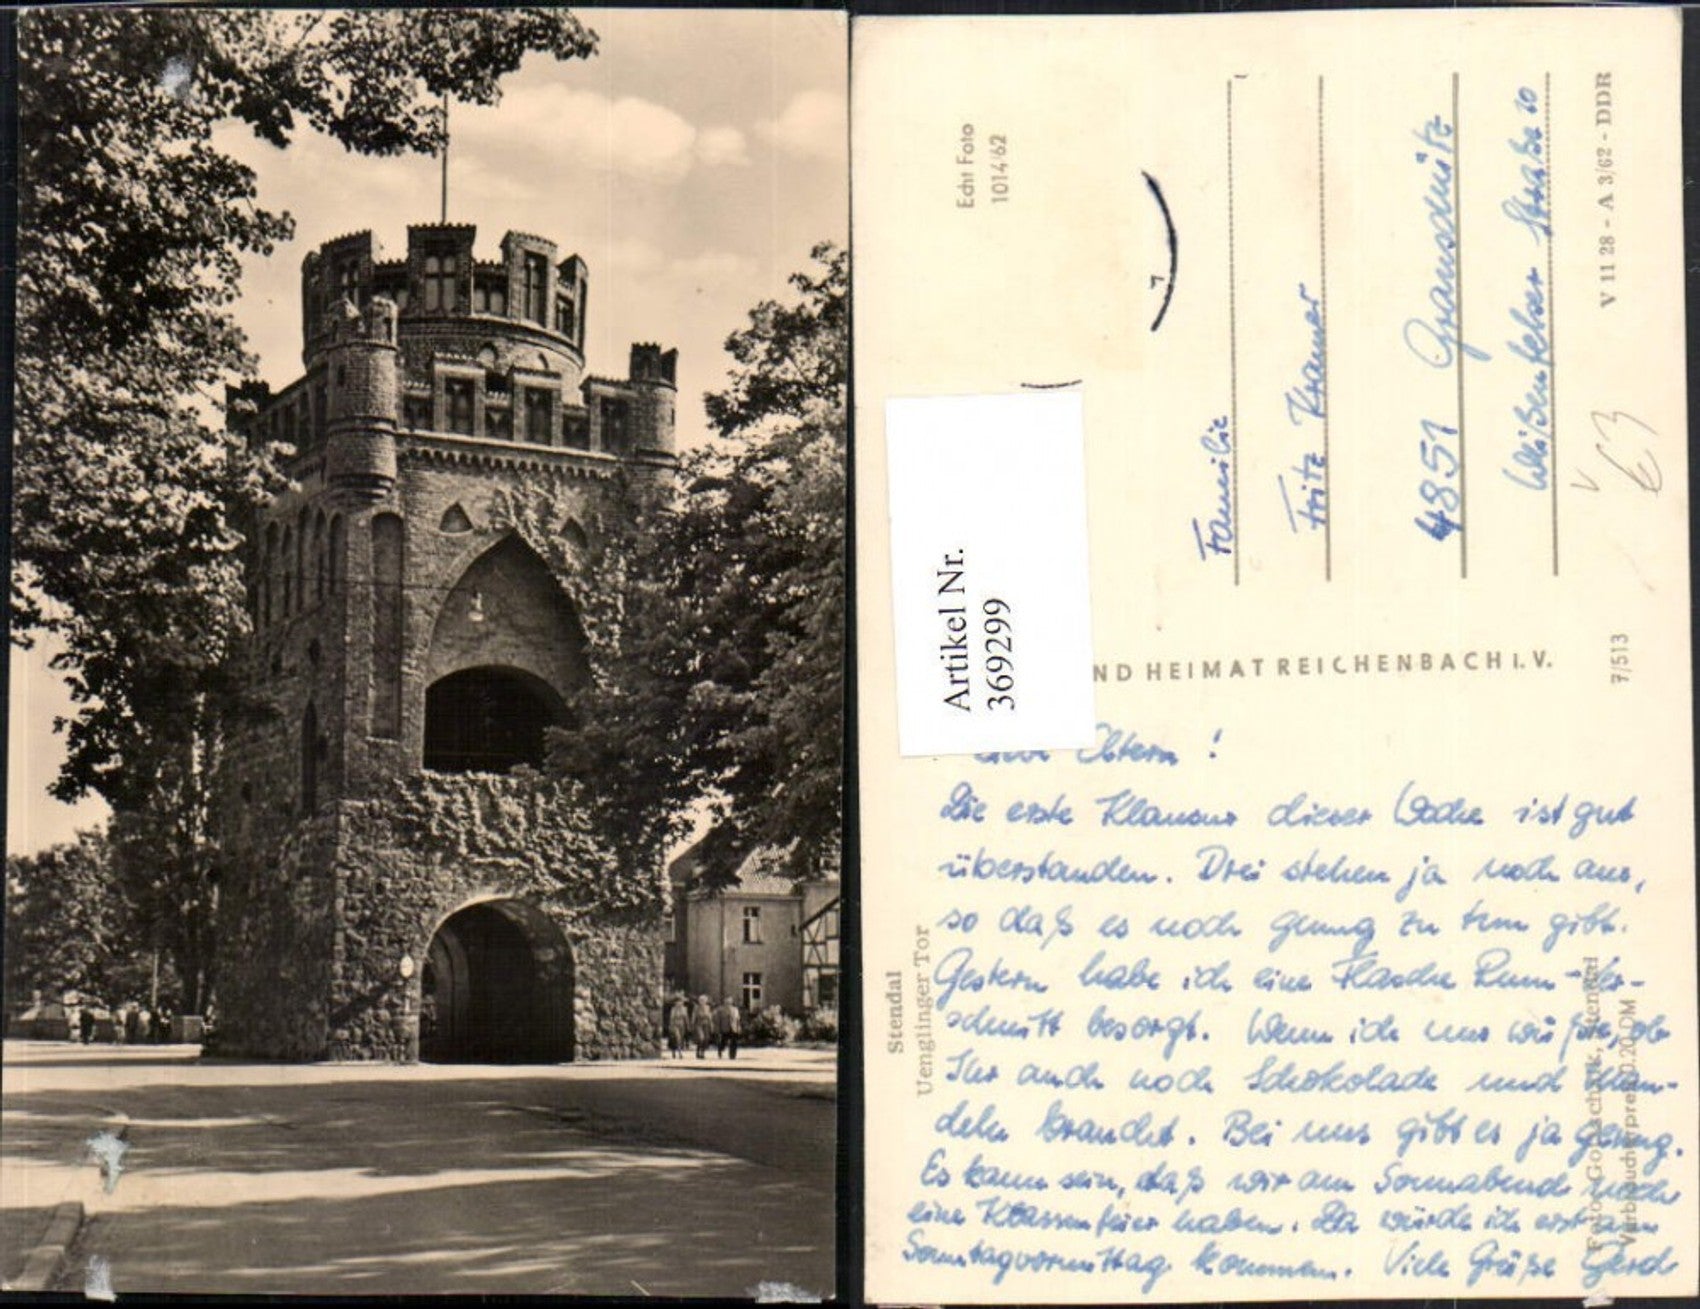 Echt Foto
1014/62
Familie
Fritz Kramer
4851 Granschütz
Weißenfelser Straße 20
V 11 28 - A 3/62 - DDR
63
7/513
Artikel Nr.
369299
ND HEIMAT REICHENBACH i. V.
Stendal
Uenglinger Tor
Eltern !
Die erste Klausur dieser Woche ist gut
überstanden. Drei stehen ja noch aus,
so daß es noch genug zu tun gibt.
Gestern habe ich eine Flasche Rum-Ver-
schnitt besorgt. Wenn ich nur wüßte, ob
Ihr auch noch Schokolade und Man-
deln braucht. Bei uns gibt es ja genug.
Es kann sein, daß wir am Sonnabend noch
eine Klassenfeier haben. Da würde ich erst am
Sonntagvormittag kommen. Viele Grüße Gerd
Stendal
Verbraucherpreis 0.20 DM